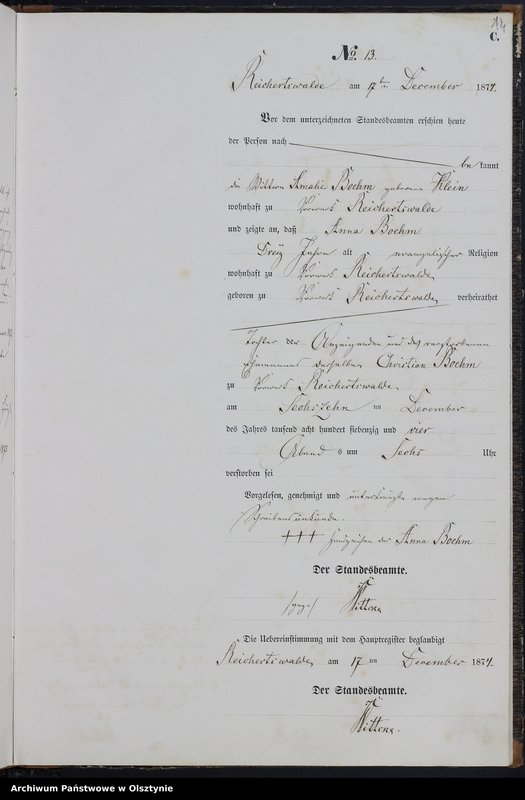 14
C.
No. 13.
Reichertswalde am 17ten December 1874.
Vor dem unterzeichneten Standesbeamten erschien heute
der Person nach
bekannt
die Wittwe Amalie Boehm geborene Klein
wohnhaft zu Vorwerk Reichertswalde
und zeigte an, daß Anna Boehm
Drey Jahre alt evangelischer Religion
wohnhaft zu Vorwerk Reichertswalde
geboren zu Vorwerk Reichertswalde verheirathet
Tochter der Anzeigenden und des verstorbenen
Ehemannes derselben Christian Boehm
zu Vorwerk Reichertswalde
am Sechszehn ten December
des Jahres tausend acht hundert siebenzig und vier
Abends um Sechs Uhr
verstorben sei
Vorgelesen, genehmigt und unterkreuzt wegen
Schreibensunkunde.
+++ Handzeichen der Anna Boehm
Der Standesbeamte.
/gez./
Die Uebereinstimmung mit dem Hauptregister beglaubigt
Reichertswalde am 17 ten December 1874.
Der Standesbeamte.
Archiwum Państwowe w Olsztynie